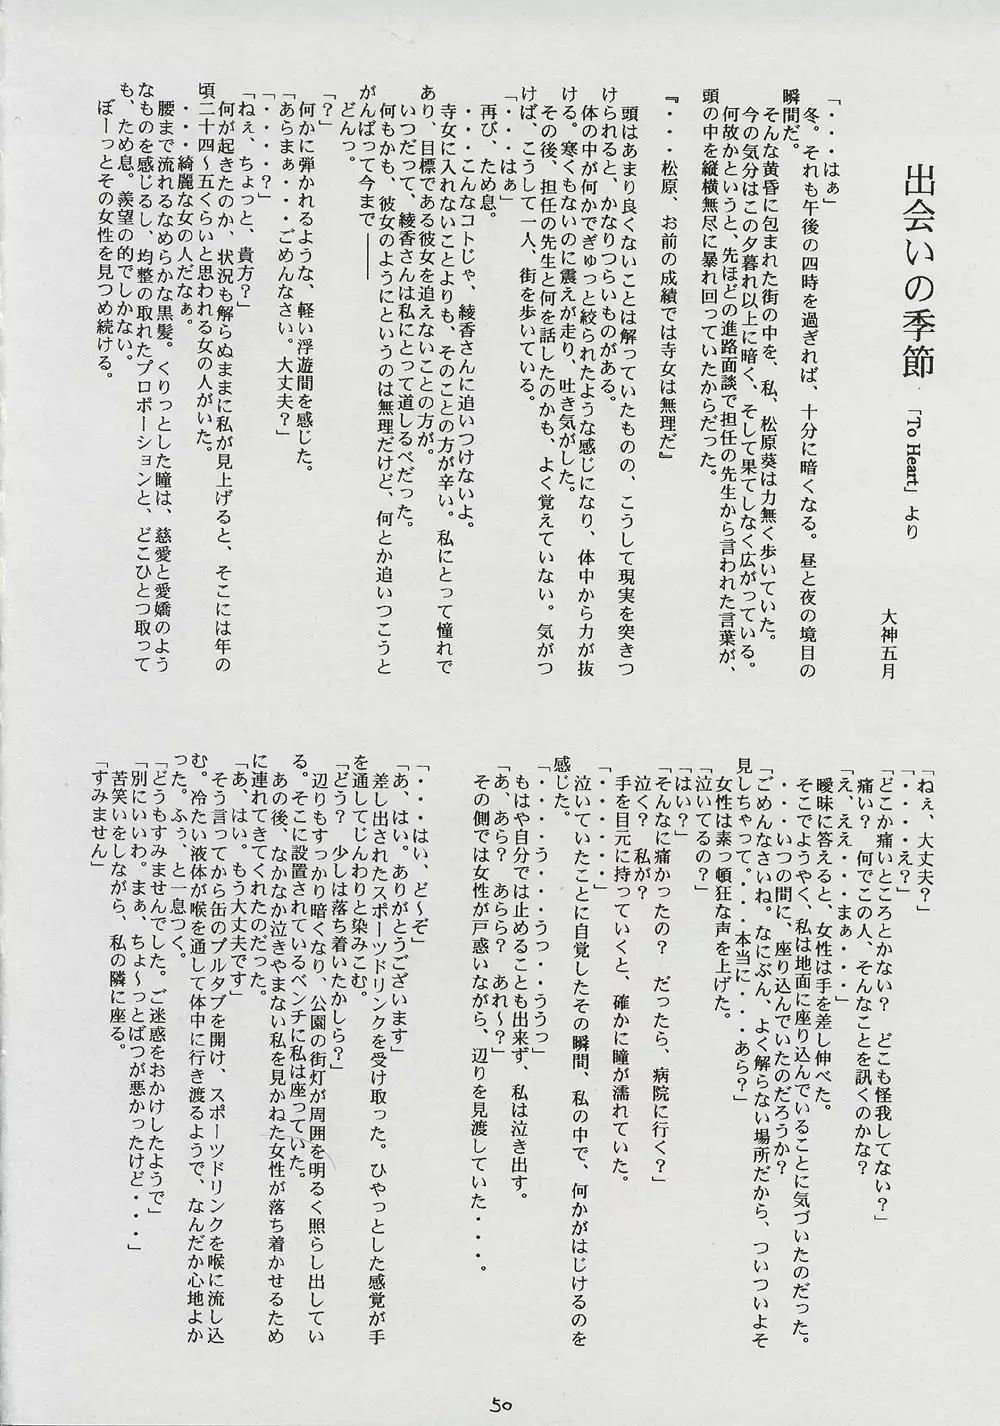 出会いの季節 「To Heart」より
大神五月
「・・・はぁ」
冬。それも午後の四時を過ぎれば、十分に暗くなる。昼と夜の境目の
瞬間だ。
そんな黄昏に包まれた街の中を、私、松原葵は力無く歩いていた。
今の気分はこの夕暮れ以上に暗く、そして果てしなく広がっている。
何故かというと、先ほどの進路面談で担任の先生から言われた言葉が、
頭の中を縦横無尽に暴れ回っていたからだった。
『・・・松原、お前の成績では寺女は無理だ』
頭はあまり良くないことは解っていたものの、こうして現実を突きつ
けられると、かなりつらいものがある。
体の中が何かでぎゅっと絞られたような感じになり、体中から力が抜
ける。寒くもないのに震えが走り、吐き気がした。
その後、担任の先生と何を話したのかも、よく覚えていない。気がつ
けば、こうして一人、街を歩いている。
「・・・はぁ」
再び、ため息。
・・・こんなコトじゃ、綾香さんに追いつけないよ。
寺女に入れないことよりも、そのことの方が辛い。私にとって憧れで
あり、目標である彼女を追えないことの方が。
いつだって、綾香さんは私にとって道しるべだった。
何もかも、彼女のようにというのは無理だけど、何とか追いつこうと
がんばって今まで――――
どんっ。
「？」
何かに弾かれるような、軽い浮遊間を感じた。
「あらまぁ・・・ごめんなさい。大丈夫？」
「・・・・？」
「ねぇ、ちょっと、貴方？」
何が起きたのか、状況も解らぬままに私が見上げると、そこには年の
頃二十四～五くらいと思われる女の人がいた。
・・・綺麗な女の人だなぁ。
腰まで流れるなめらかな黒髪。くりっとした瞳は、慈愛と愛嬌のよう
なものを感じるし、均整の取れたプロポーションと、どこひとつ取って
も、ため息。羨望の的でしかない。
ぼーっとその女性を見つめ続ける。
「ねぇ、大丈夫？」
「・・・・え？」
「どこか痛いところとかない？　どこも怪我してない？」
痛い？　何でこの人、そんなことを訊くのかな？
「え、ええ・・・まぁ・・・」
曖昧に答えると、女性は手を差し伸べた。
そこでようやく、私は地面に座り込んでいることに気づいたのだった。
・・・いつの間に、座り込んでいたのだろうか？
「ごめんなさいね。なにぶん、よく解らない場所だから、ついついよそ
見しちゃって。・・・本当に・・・あら？」
女性は素っ頓狂な声を上げた。
「泣いてるの？」
「はい？」
「そんなに痛かったの？　だったら、病院に行く？」
泣く？　私が？
手を目元に持っていくと、確かに瞳が濡れていた。
「・・・・・」
泣いていたことに自覚したその瞬間、私の中で、何かがはじけるのを
感じた。
「・・・・・う・・・・うっ・・ううっ」
もはや自分では止めることも出来ず、私は泣き出す。
「あ、あら？　あらら？　あれ～？」
その側では女性が戸惑いながら、辺りを見渡していた・・・・。
「・・・はい、ど～ぞ」
「あ、はい。ありがとうございます」
差し出されたスポーツドリンクを受け取った。ひやっとした感覚が手
を通してじんわりと染みこむ。
「どう？　少しは落ち着いたかしら？」
辺りもすっかり暗くなり、公園の街灯が周囲を明るく照らし出してい
る。そこに設置されているベンチに私は座っていた。
あの後、なかなか泣きやまない私を見かねた女性が落ち着かせるため
に連れてきてくれたのだった。
「あ、はい。もう大丈夫です」
そう言ってから缶のプルタブを開け、スポーツドリンクを喉に流し込
む。冷たい液体が喉を通して体中に行き渡るようで、なんだか心地よか
った。ふぅ、と一息つく。
「どうもすみませんでした。ご迷惑をおかけしたようで」
「別にいいわ。まぁ、ちょ～っとばつが悪かったけど・・・」
苦笑いをしながら、私の隣に座る。
「すみません」
50